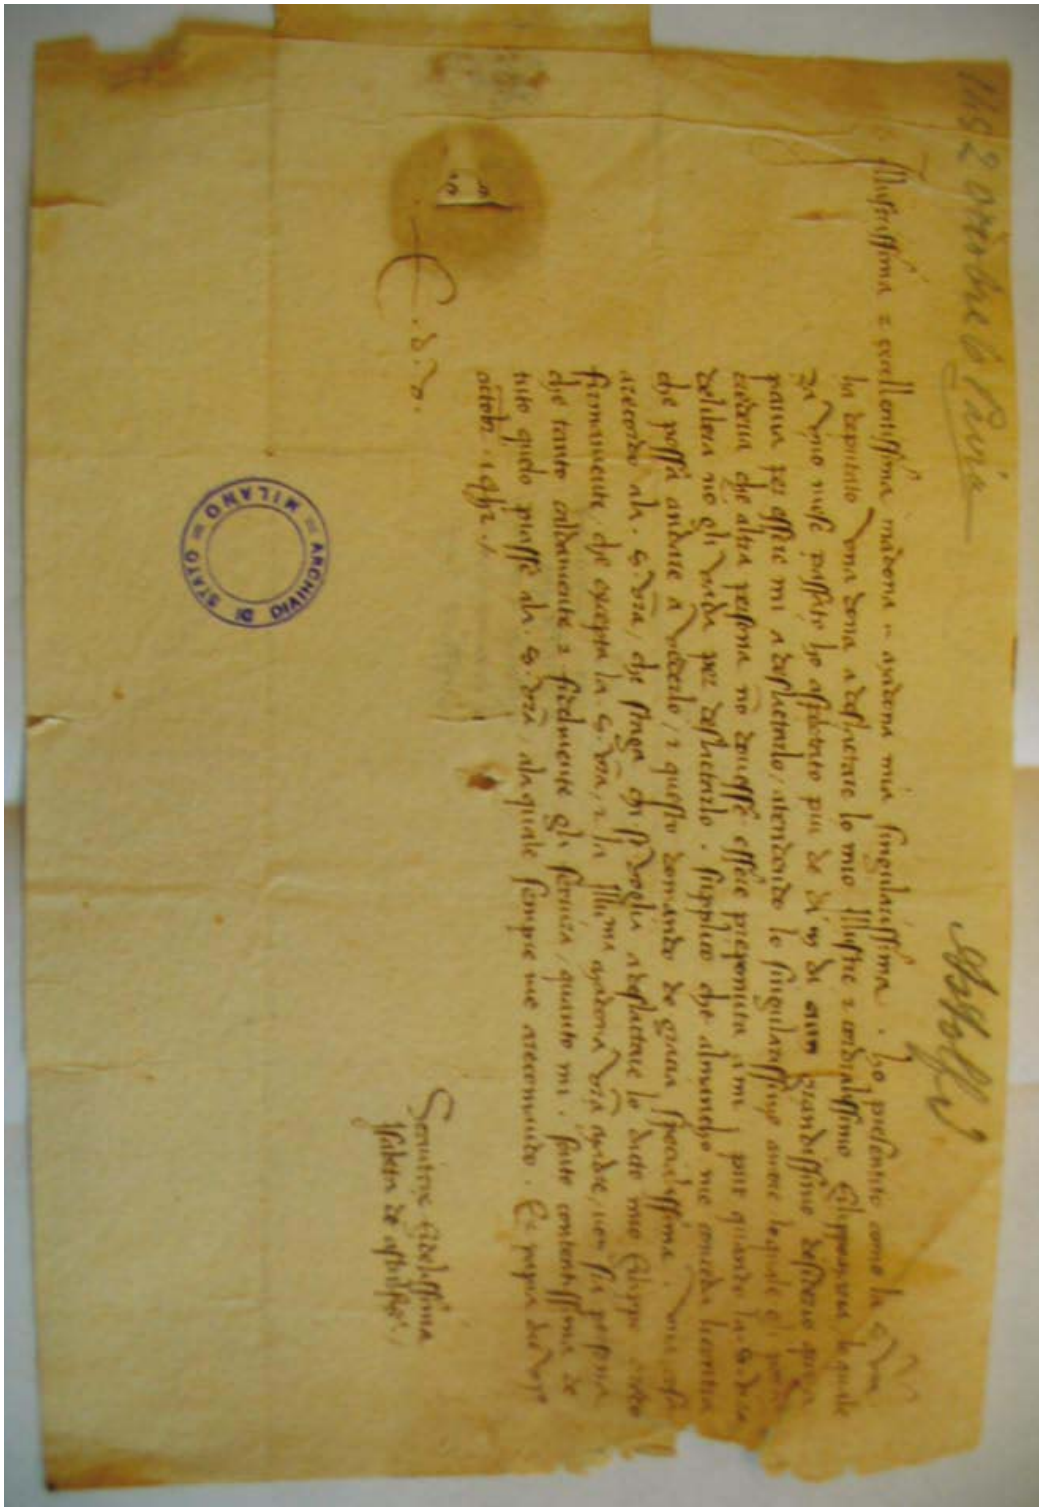 1452 ottobre 6 Pavia
Illustrissima z excellentissima madona madona mia singularissima . ho presentito como la S. Vra
ha deputato una dona a deslactare lo mio Illustre z cordialissimo Filippomaria, loquale
za uno mese passato ho aspectato piu de di in di cum grandissimo desiderio
per essere mi a deslactarlo, atendendo lo singularissimo amore loquale gli porto
credeua che altra persona nō douesse essere preponuta a mi, pur quando la S. Vra
delibera nō gli uada per deslactarlo . supplico che almancho me conceda licentia
che possa andare a uederlo, z questo domando de gratia spetialissima . 
arecordo ala . S. Vra, che staga chi si uoglia a deslactare lo dicto mio Filippo
firmamente, che excepta la S. Vra, z la Illma madona Vra madre, non sia persona
che tanto caldamente z fidelmente gli seruira, quanto mi . staro contentissima de
tuto quelo piasse ala . S. Vra, ala quale sempre me arecomando . Ex papia die
octobr 1452
E . d . v .
Seruitrix fidelissima
ARCHIVIO DI STATO = MILANO =